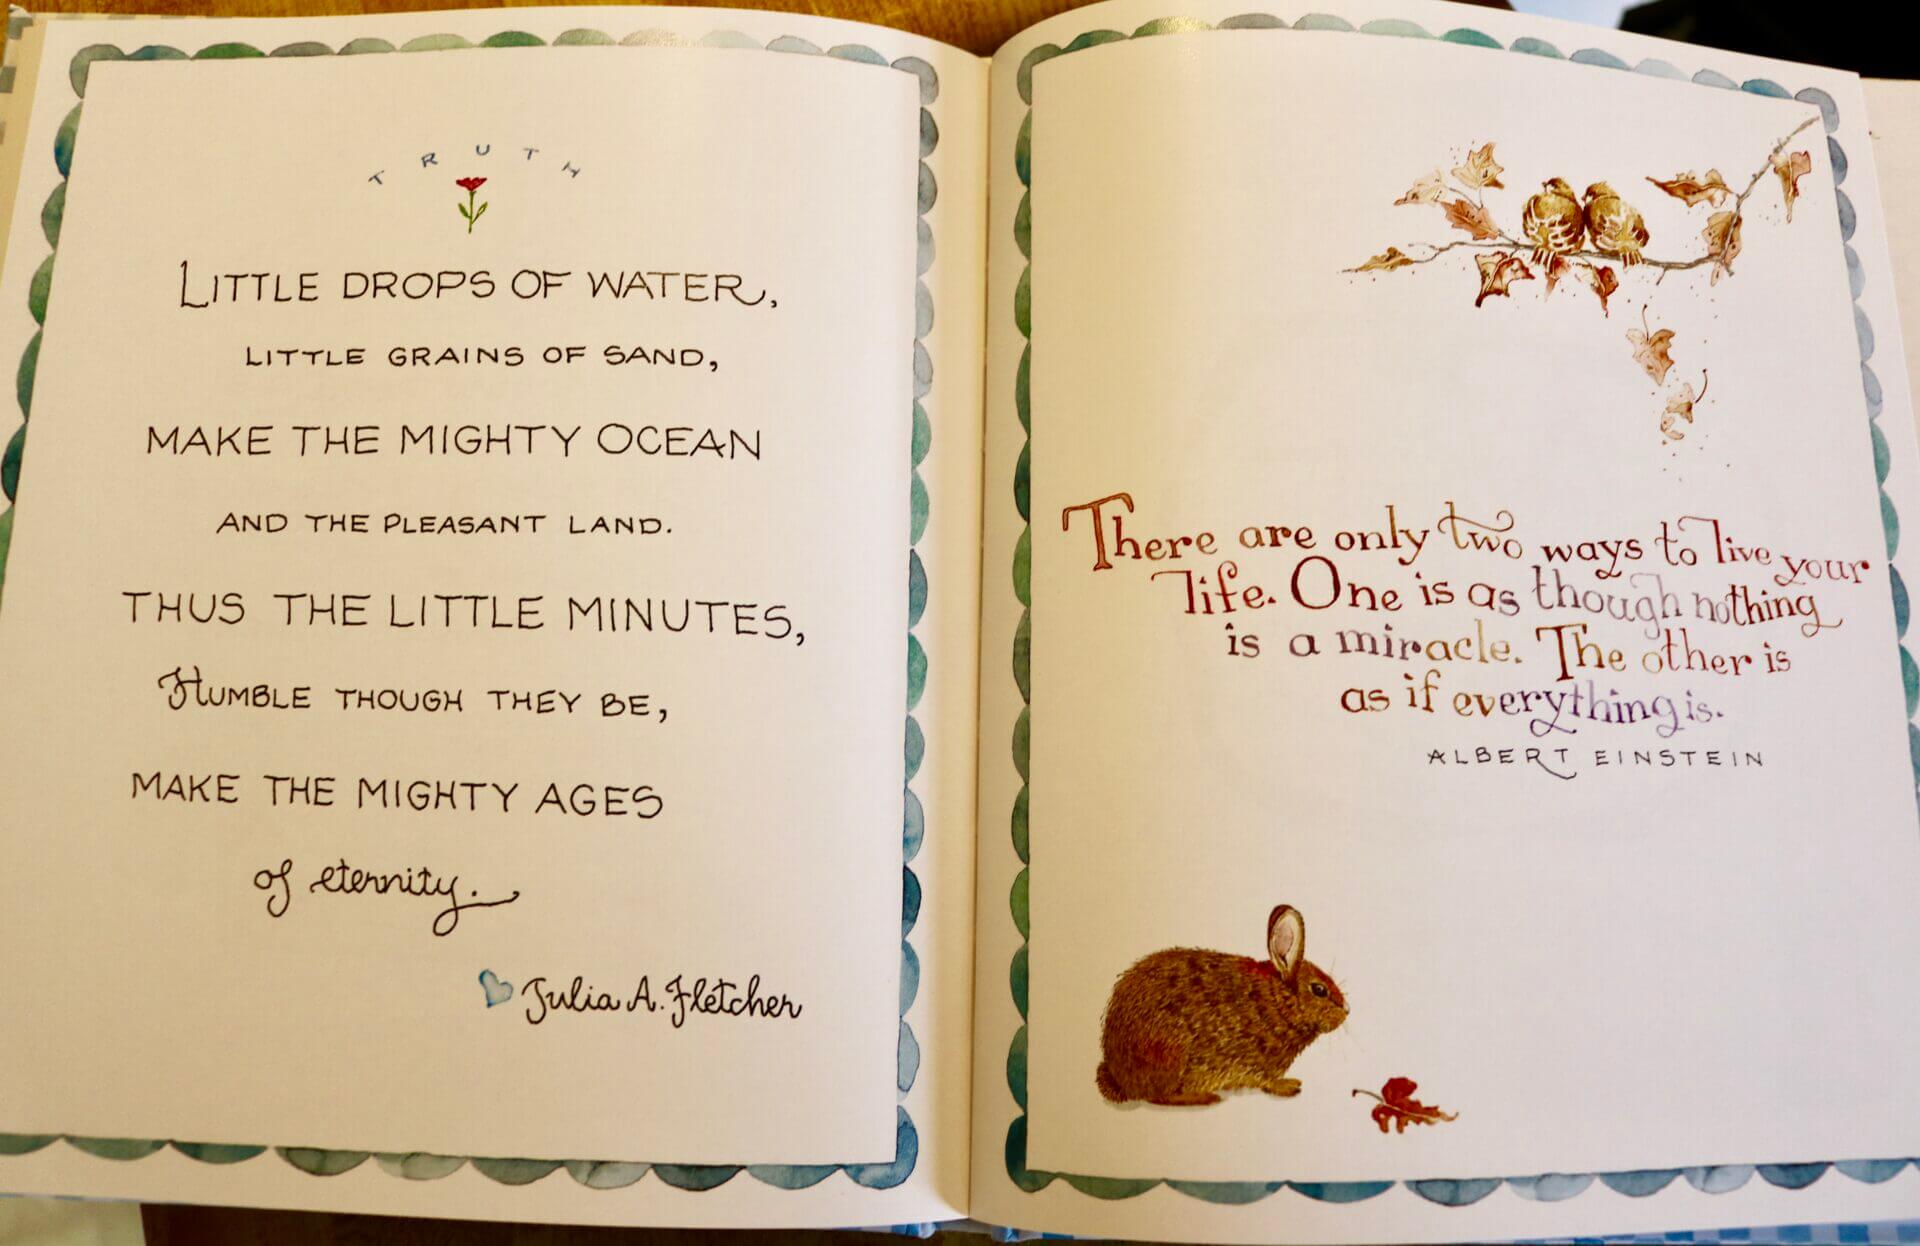 TRUTH
LITTLE DROPS OF WATER,
LITTLE GRAINS OF SAND,
MAKE THE MIGHTY OCEAN
AND THE PLEASANT LAND.
THUS THE LITTLE MINUTES,
HUMBLE THOUGH THEY BE,
MAKE THE MIGHTY AGES
of eternity.
Julia A. Fletcher
There are only two ways to live your
life. One is as though nothing
is a miracle. The other is
as if everything is.
ALBERT EINSTEIN